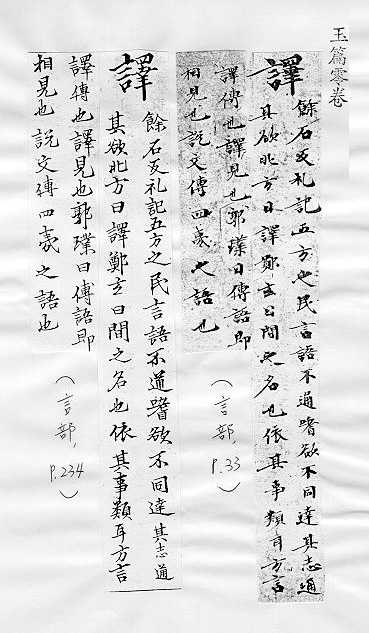 玉篇零卷
譯
餘石反礼記五方之民言語不通嗜欲不同達其志通
其欲北方曰譯鄭玄曰間之名也依其事類耳方言
譯傳也譯見也郭璞曰傳語即
相見也說文傳四夷之語也
(言部, P.33)
譯
餘石反礼記五方之民言語不通嗜欲不同達其志通
其欲北方曰譯鄭玄曰間之名也依其事類耳方言
譯傳也譯見也郭璞曰傳語即
相見也說文傳四夷之語也
(言部, P.234)